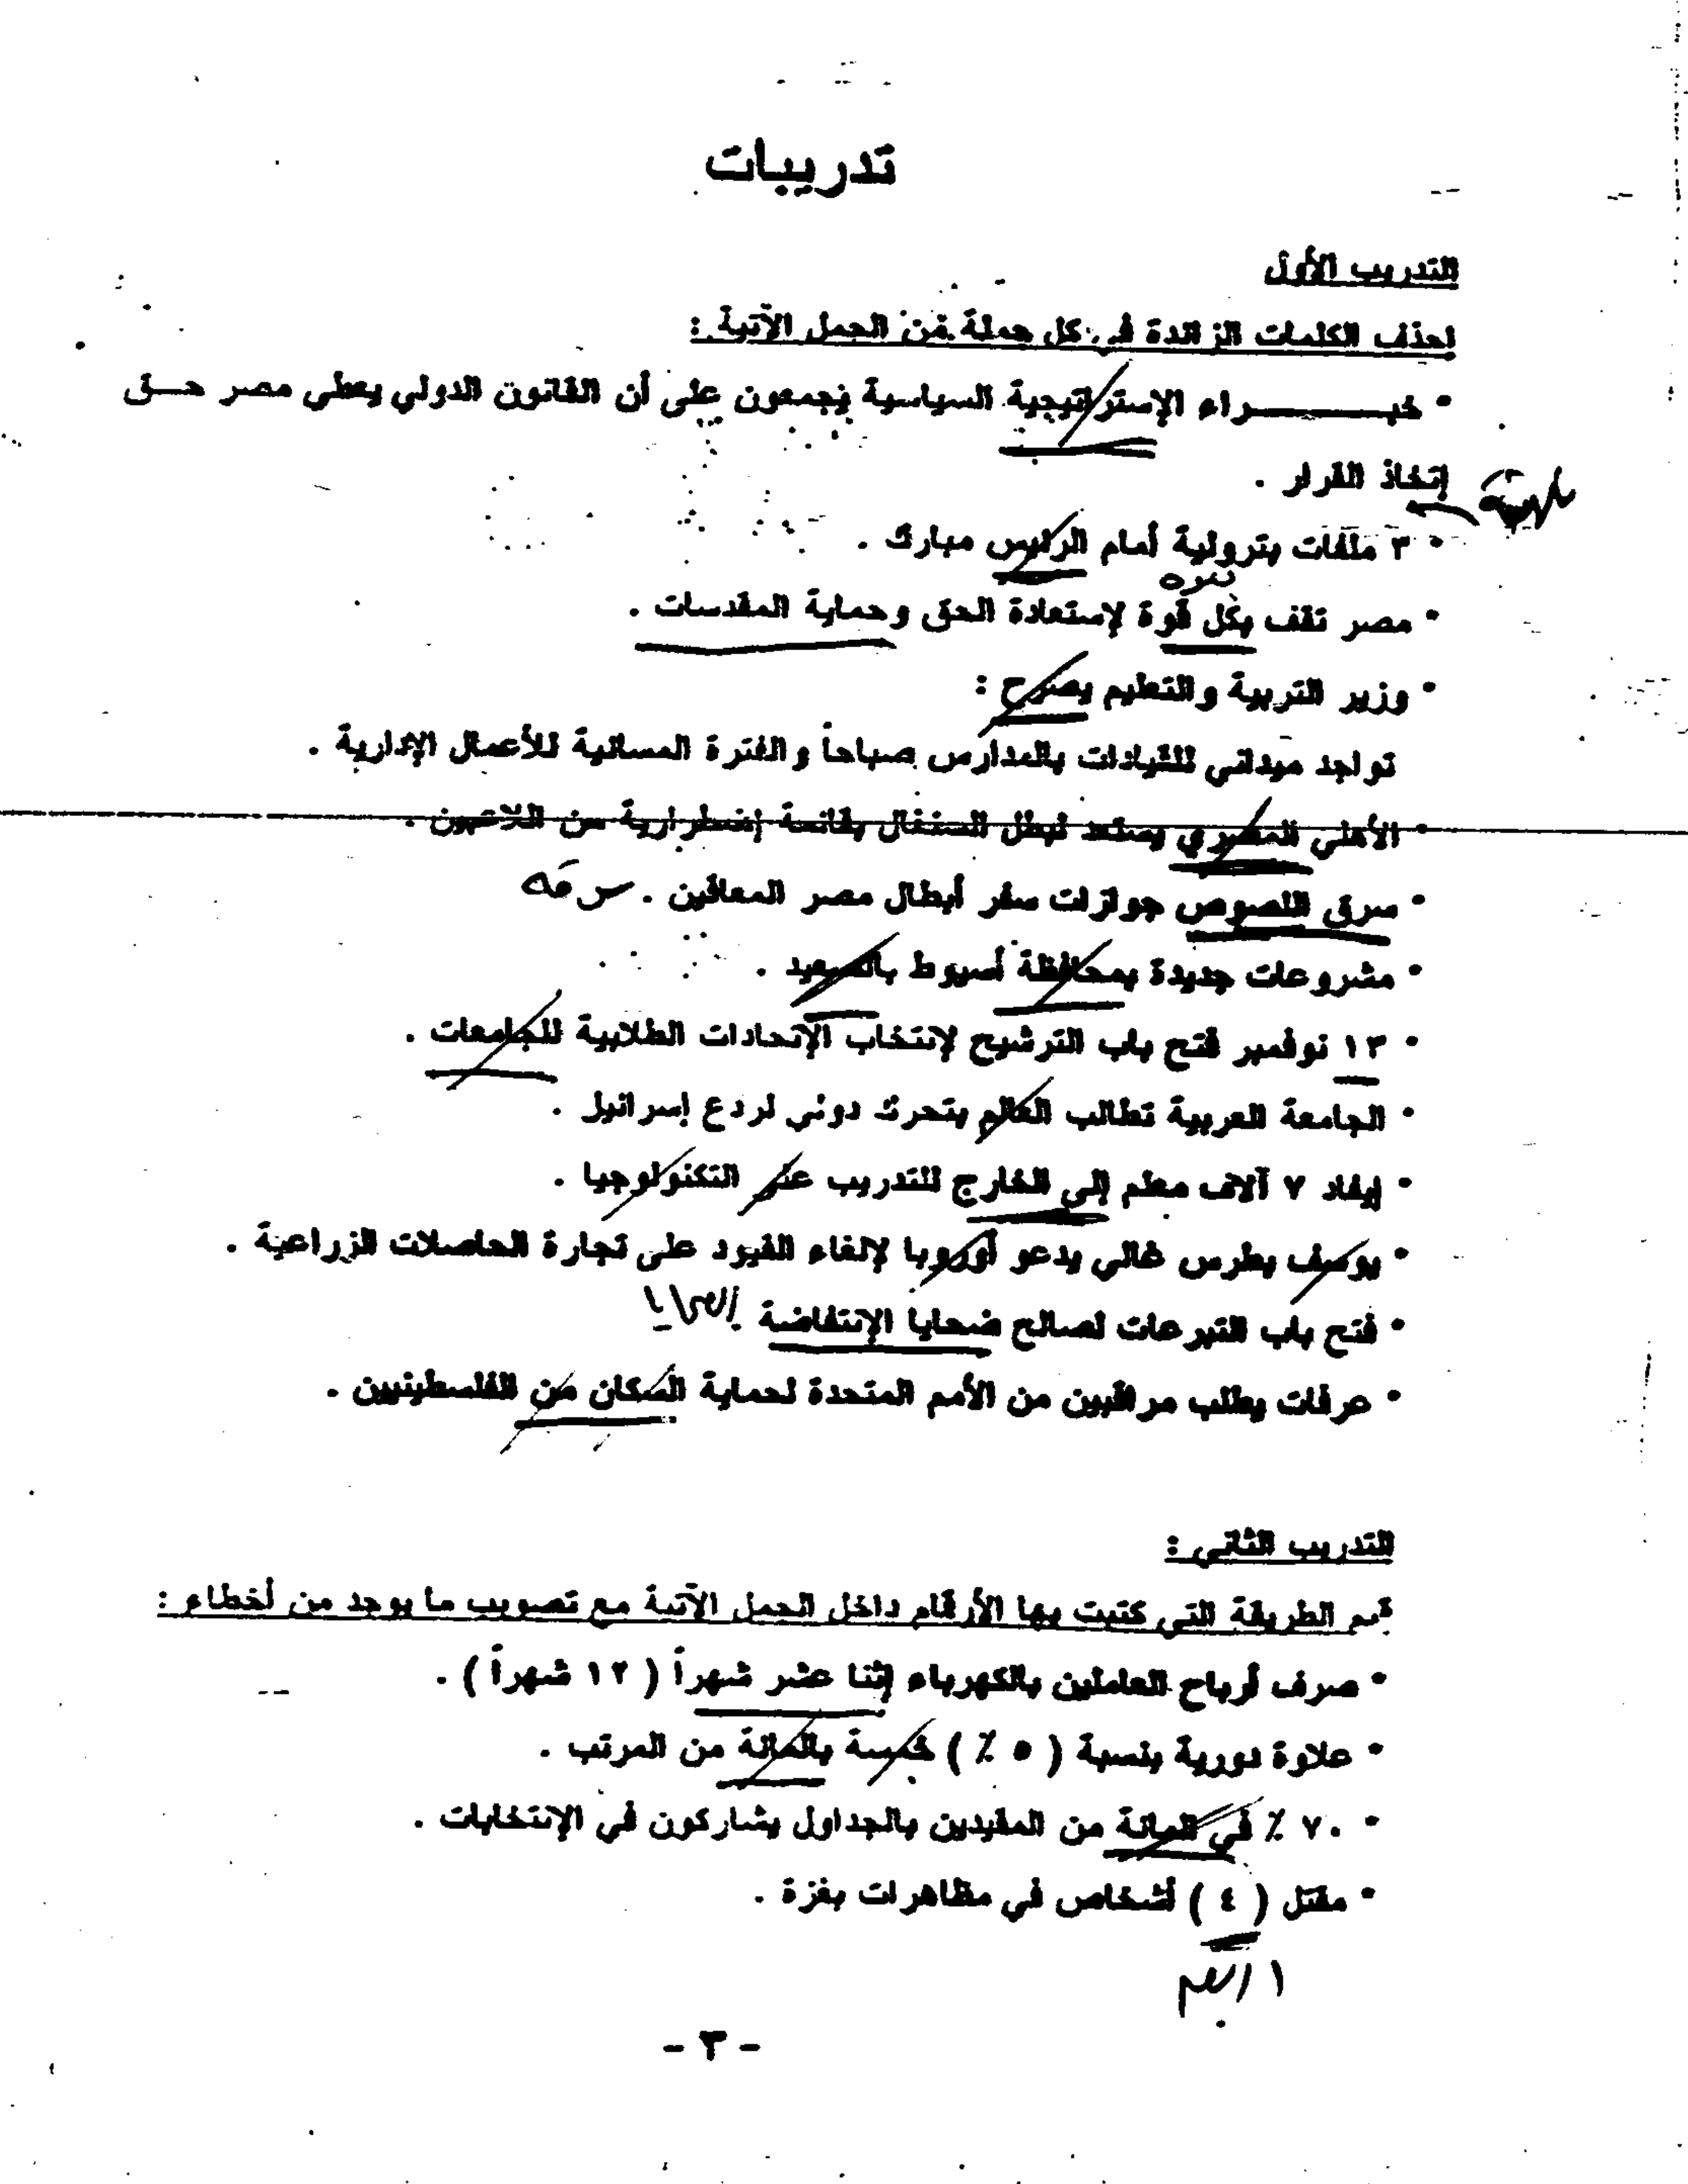 تدريبات
التدريب الأول
احذف الكلمات الزائدة في كل جملة من الجمل الآتية :
• خبــــــراء الإستراتيجية السياسية يجمعون على أن القانون الدولي يعطي مصر حــق
إتخاذ القرار .
• ٣ ملفات بترولية أمام الرئيس مبارك .
• مصر تقف بكل قوة لإستعادة الحق وحماية المقدسات .
• وزير التربية والتعليم يصرح :
تواجد ميداني للقيادات بالمدارس صباحاً والفترة المسائية للأعمال الإدارية .
• الأهلي المصري يستعد لبطل السنغال بقائمة إضطرارية من اللاعبون .
• سرق اللصوص جوازات سفر أبطال مصر المعاقين . سرقة
• مشروعات جديدة بمحافظة أسيوط بالصعيد .
• ١٣ نوفمبر فتح باب الترشيح لإنتخاب الإتحادات الطلابية للجامعات .
• الجامعة العربية تطالب العالم بتحرك دولي لردع إسرائيل .
• إيفاد ٧ آلاف معلم إلى الخارج للتدريب على التكنولوجيا .
• يوسف بطرس غالي يدعو أوروبا لإلغاء القيود على تجارة الحاصلات الزراعية .
• فتح باب التبرعات لصالح ضحايا الإنتفاضة .
• عرفات يطلب مراقبين من الأمم المتحدة لحماية السكان من الفلسطينيين .
التدريب الثاني :
قيم الطريقة التي كتبت بها الأرقام داخل الجمل الآتية مع تصويب ما يوجد من أخطاء :
• صرف أرباح العاملين بالكهرباء إثنا عشر شهراً ( ١٢ شهراً ) .
• علاوة دورية بنسبة ( ٥ ٪ ) خمسة بالمائة من المرتب .
• ٧٠ ٪ في المائة من المقيدين بالجداول يشاركون في الإنتخابات .
• مقتل ( ٤ ) أشخاص في مظاهرات بغزة .
- ٣ -